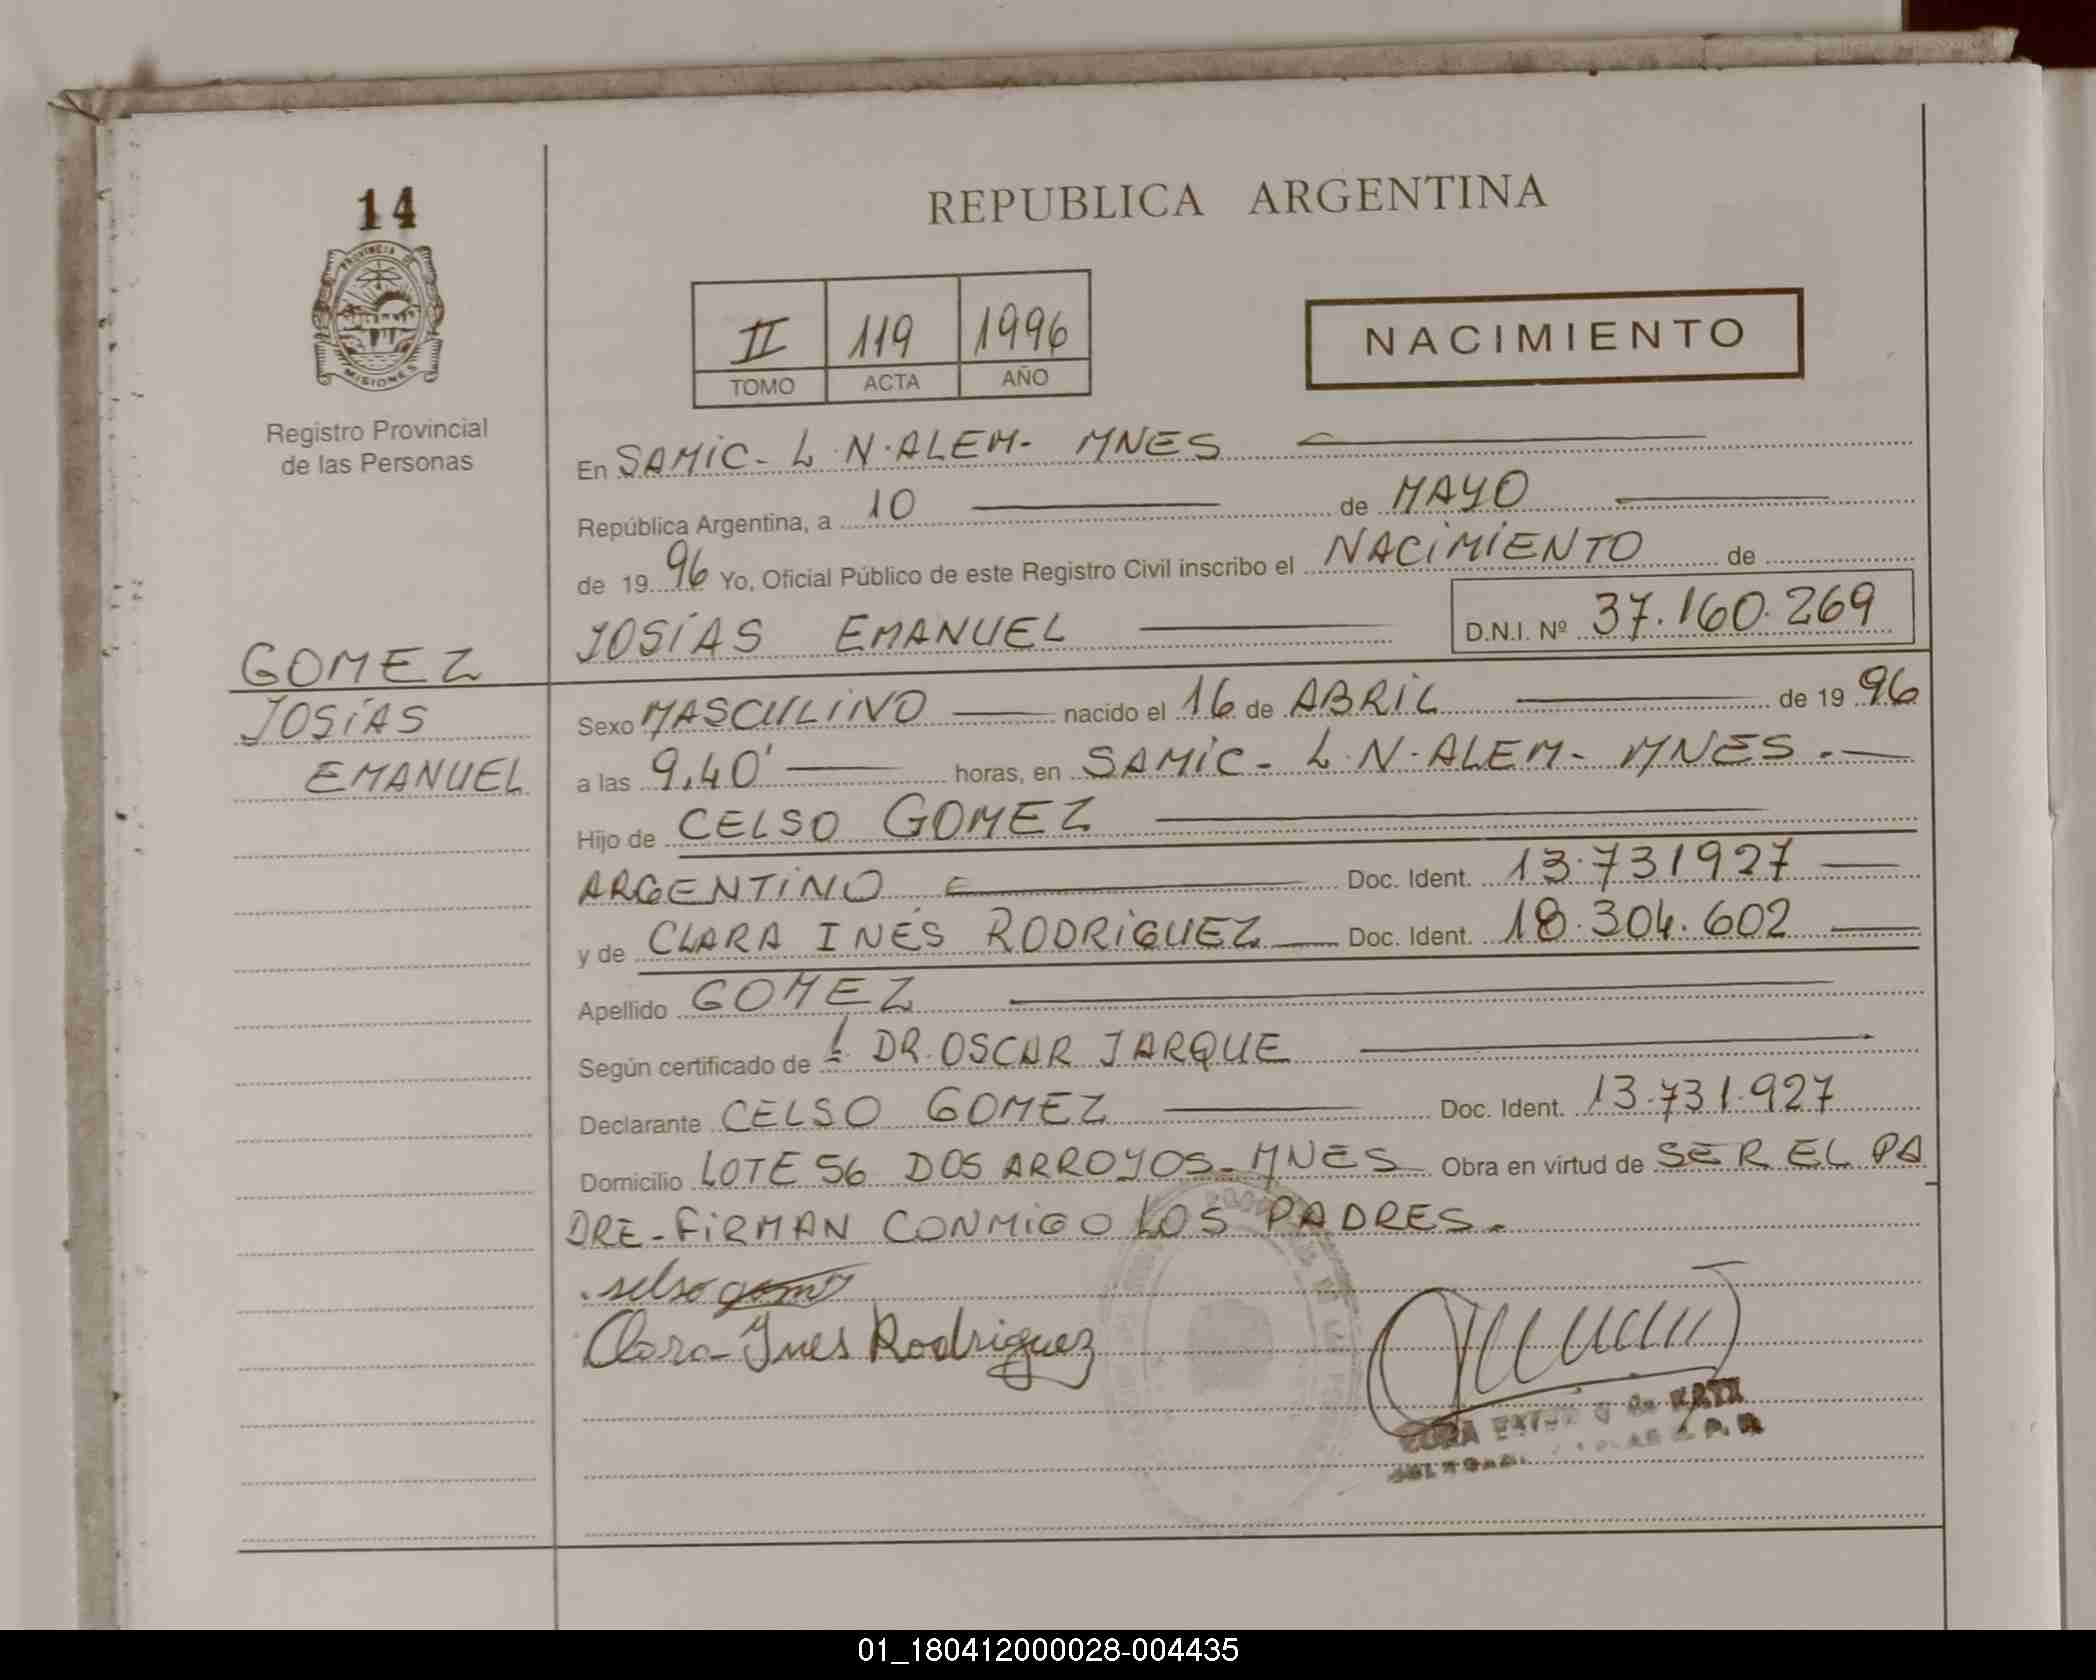 14
PROVINCIA DE
MISIONES
Registro Provincial
de las Personas
REPUBLICA ARGENTINA
II 119 1996
TOMO ACTA AÑO
NACIMIENTO
En SAMIC- L.N.ALEM- MNES
República Argentina, a 10 de MAYO
de 1996 Yo, Oficial Público de este Registro Civil inscribo el NACIMIENTO de
JOSÍAS EMANUEL D.N.I. Nº 37.160.269
GOMEZ
JOSÍAS
EMANUEL
Sexo MASCULINO nacido el 16 de ABRIL de 1996
a las 9,40' horas, en SAMIC- L.N.ALEM- MNES.-
Hijo de CELSO GOMEZ
ARGENTINO Doc. Ident. 13.731927
y de CLARA INÉS RODRIGUEZ Doc. Ident. 18.304.602
Apellido GOMEZ
Según certificado de DR.OSCAR JARQUE
Declarante CELSO GOMEZ Doc. Ident. 13.731.927
Domicilio LOTE 56 DOS ARROYOS-MNES Obra en virtud de SER EL PA
DRE-FIRMAN CONMIGO LOS PADRES.
selso gomez
Clara Ines Rodriguez
01_180412000028-004435